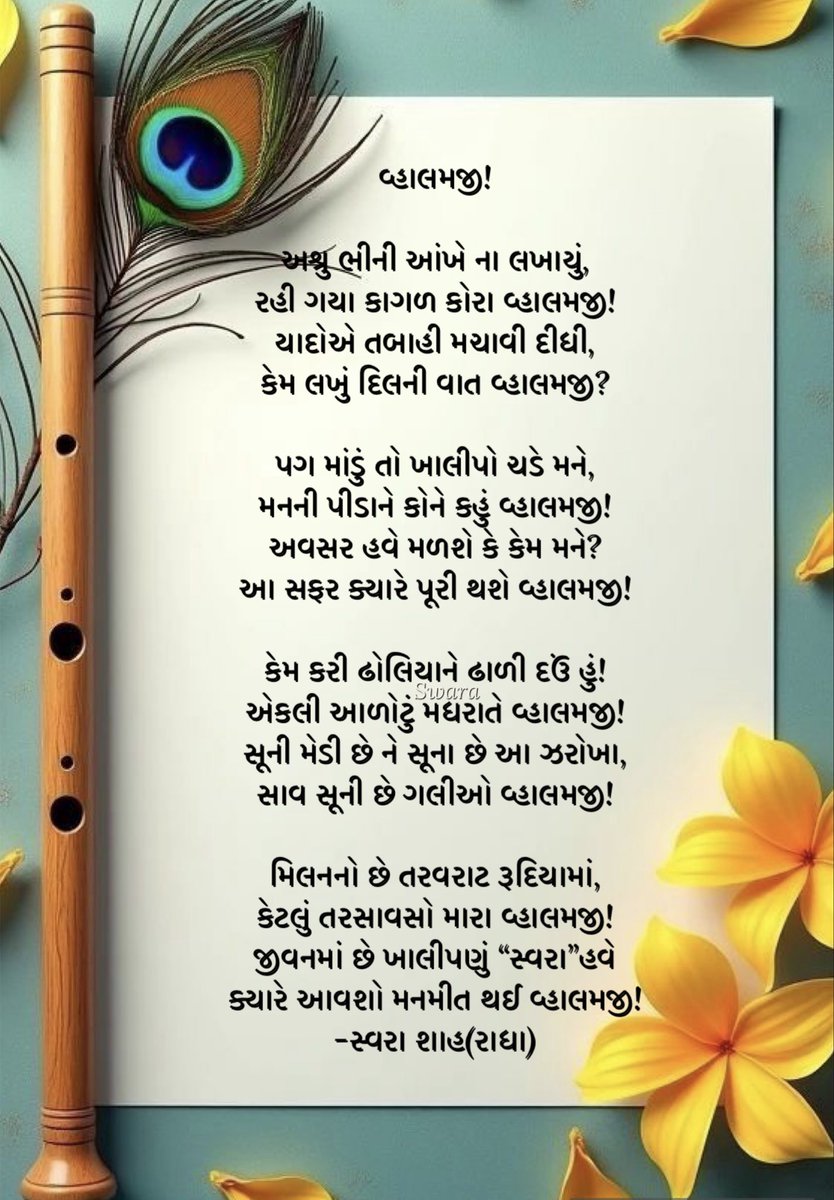 વ્હાલમજી!
અશ્રુ ભીની આંખે ના લખાયું,
રહી ગયા કાગળ કોરા વ્હાલમજી!
યાદોએ તબાહી મચાવી દીધી,
કેમ લખું દિલની વાત વ્હાલમજી?
પગ માંડું તો ખાલીપો ચડે મને,
મનની પીડાને કોને કહું વ્હાલમજી!
અવસર હવે મળશે કે કેમ મને?
આ સફર ક્યારે પૂરી થશે વ્હાલમજી!
કેમ કરી ઢોલિયાને ઢાળી દઉં હું!
Swara
એકલી આળોટું મધરાતે વ્હાલમજી!
સૂની મેડી છે ને સૂના છે આ ઝરોખા,
સાવ સૂની છે ગલીઓ વ્હાલમજી!
મિલનનો છે તરવરાટ રૂદિયામાં,
કેટલું તરસાવસો મારા વ્હાલમજી!
જીવનમાં છે ખાલીપણું “સ્વરા”હવે
ક્યારે આવશો મનમીત થઈ વ્હાલમજી!
-સ્વરા શાહ(રાધા)